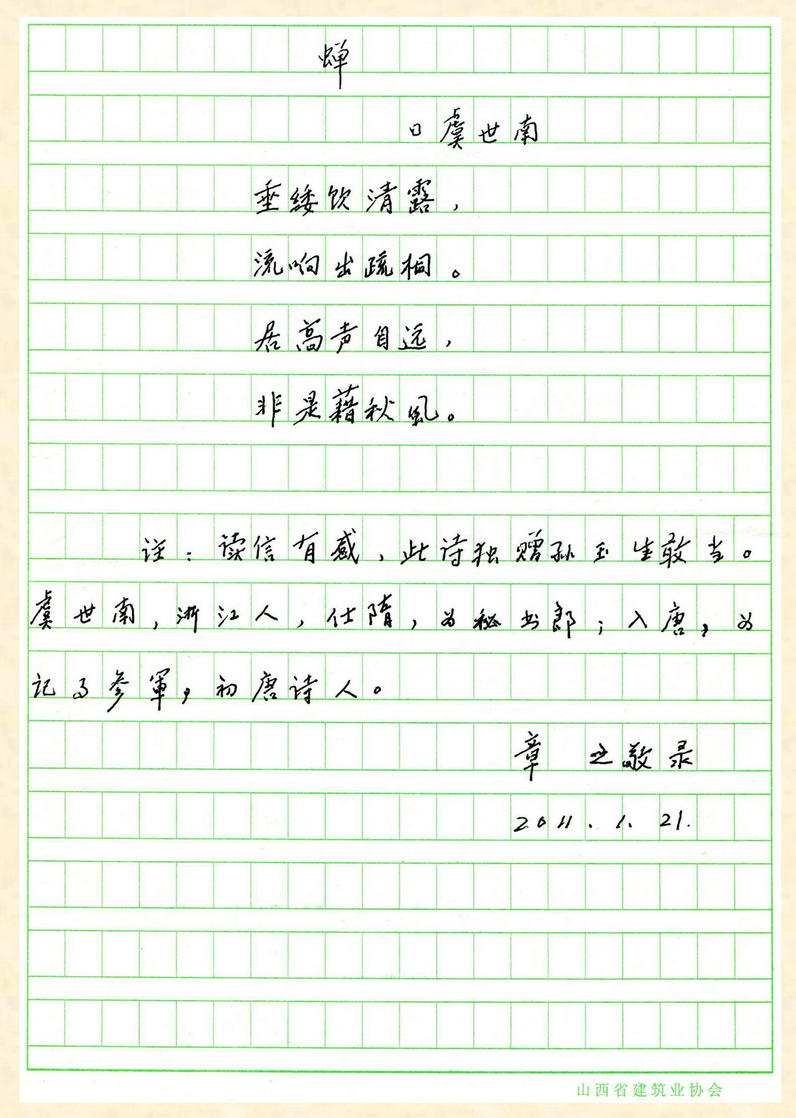 蝉
口虞世南
垂緌饮清露，
流响出疏桐。
居高声自远，
非是藉秋风。
注：读信有感，此诗独赠孙玉生敢当。
虞世南，浙江人，仕隋，为秘书郎；入唐，为
记事参軍，初唐诗人。
章 之敬录
2011.1.21.
山西省建筑业协会